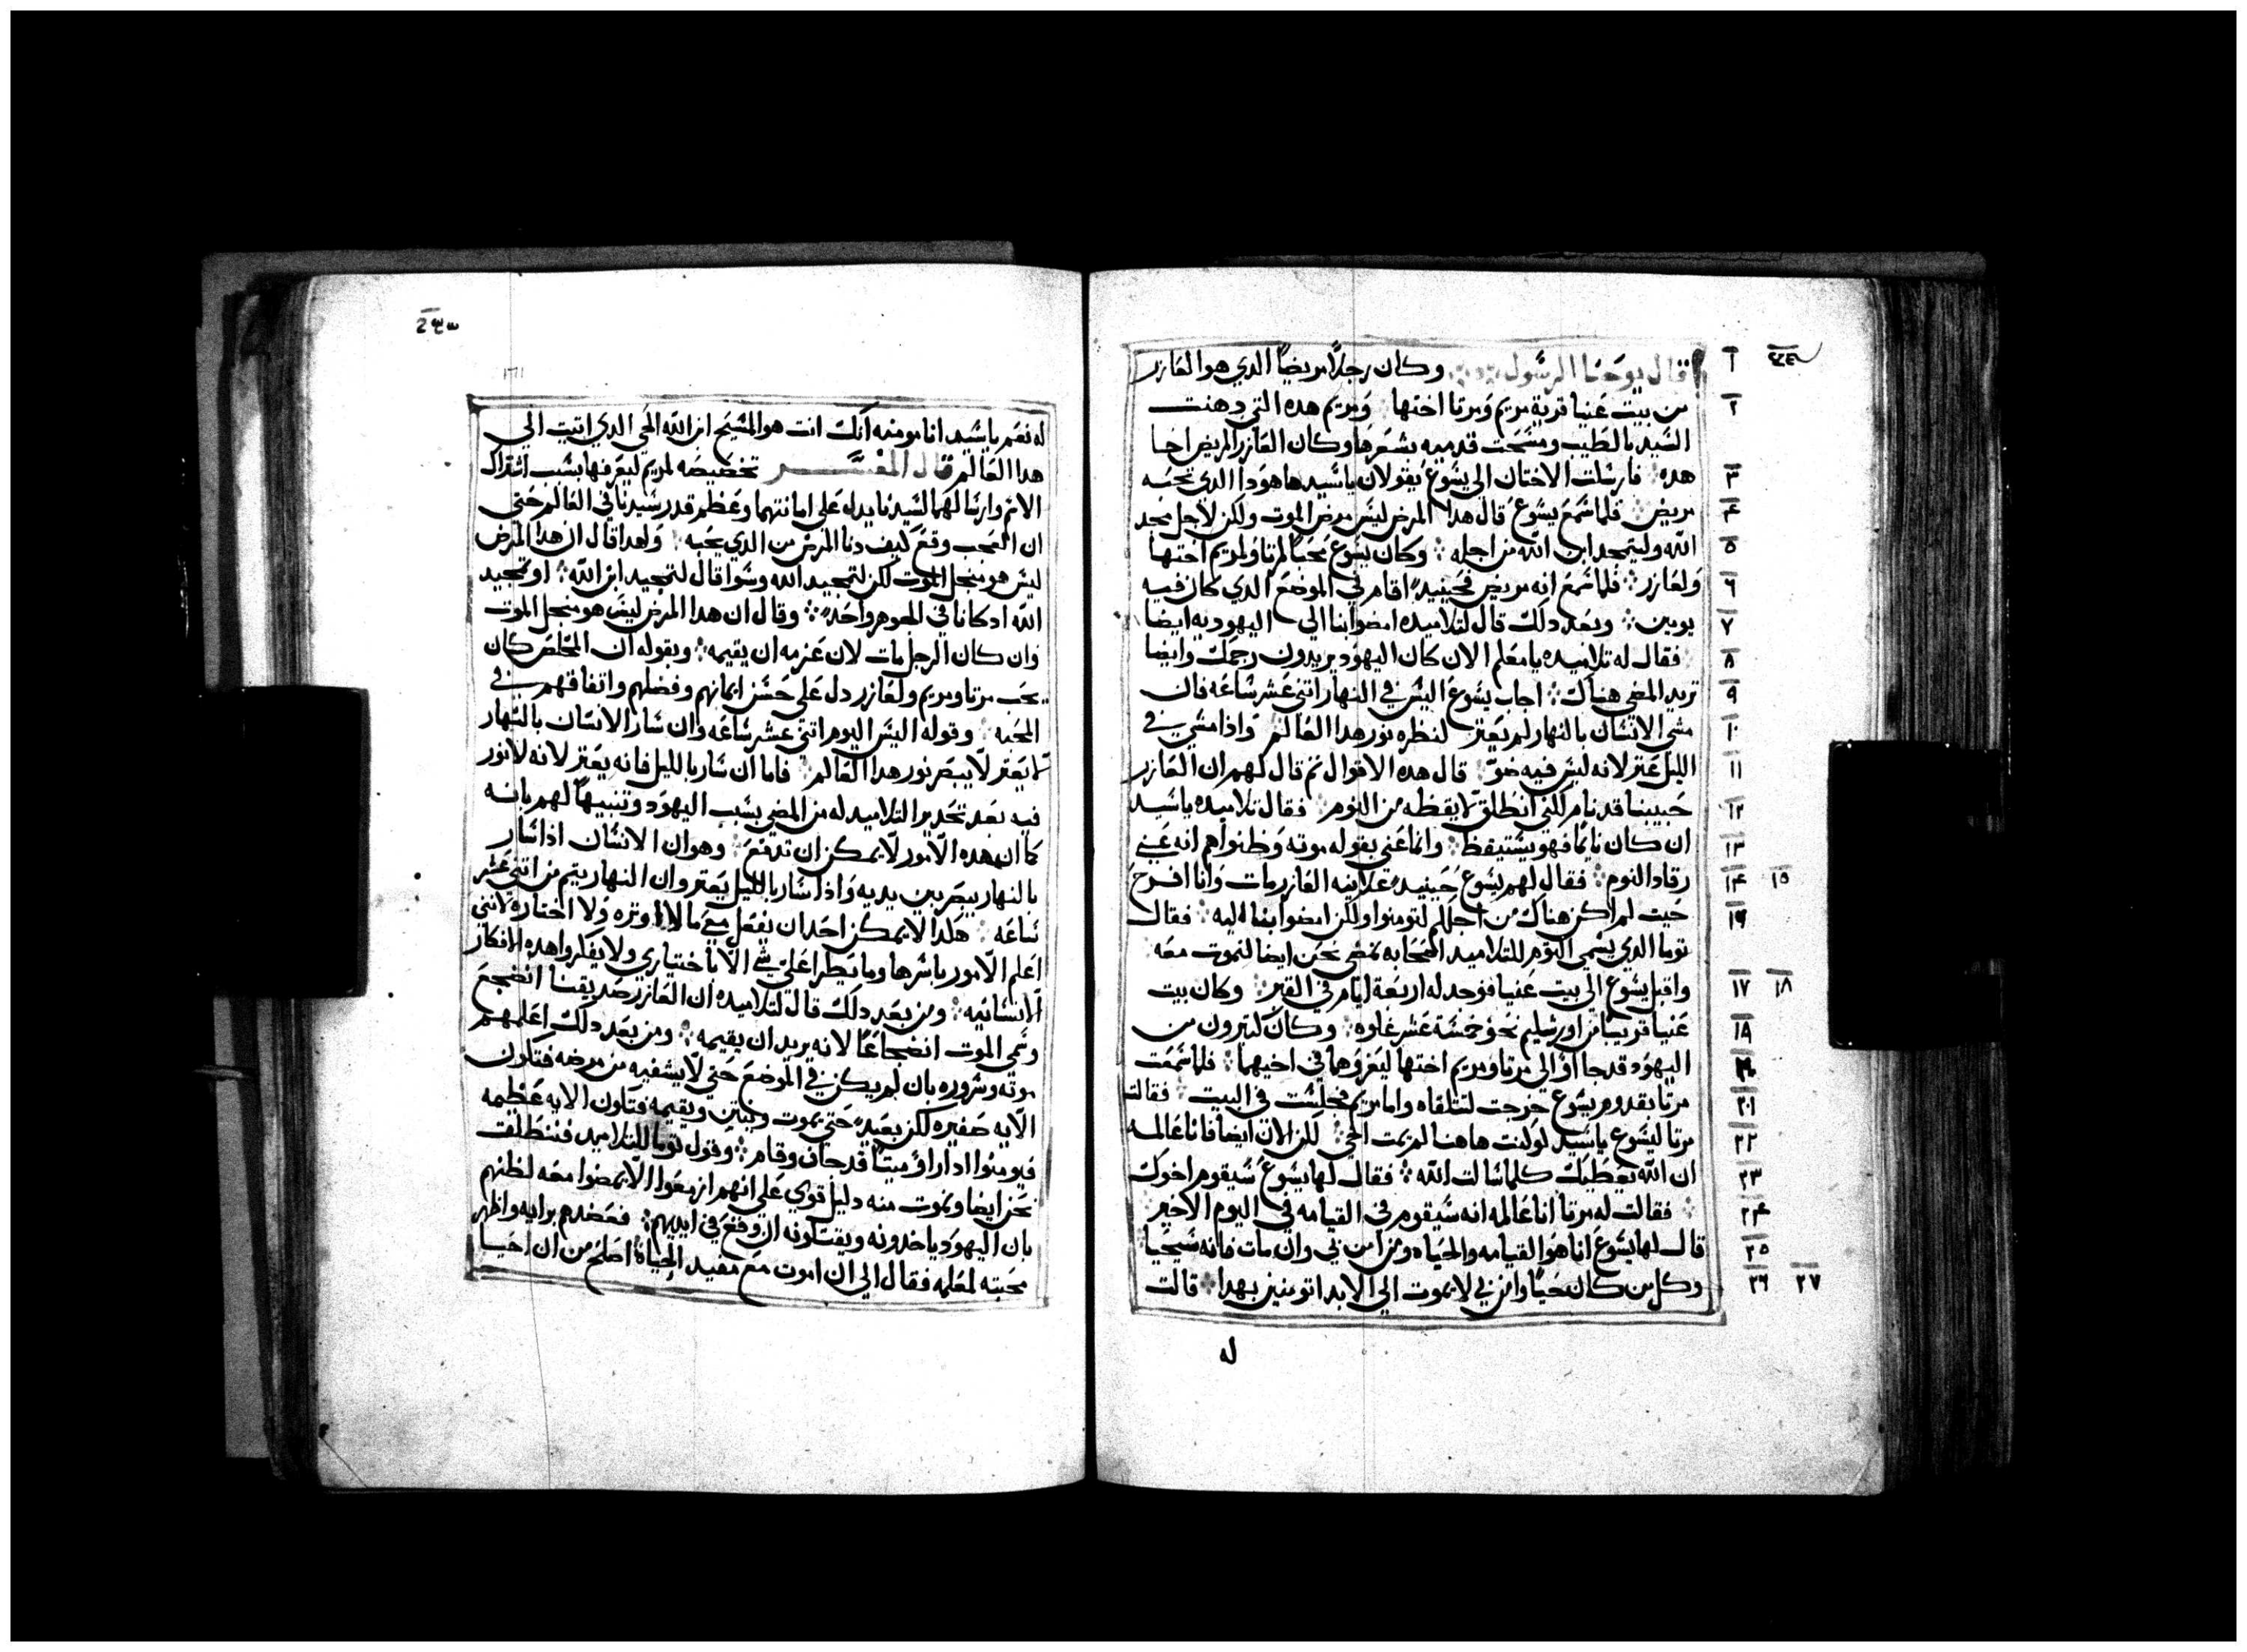 قال يوحنا الرسول وكان رجلاً مريضاً الدي هو العازر
من بيت عنيا قرية مريم ومرتا اختها ومريم هده التي دهنت
السيد بالطيب ومسحت قدميه بشعرها وكان العازر المريض اخا
هده فارسلت الاختان الى يسوع يقولان ياسيد هاهودا الدي تحبه
مريض فلما سمع يسوع قال هدا المرض ليس مرض الموت ولكن لاجل مجد
الله وليتمجد ابن الله من اجله وكان يسوع محباً لمرتا ولمريم اختها
ولعازر فلما سمع انه مريض فحينيدٍ اقام في الموضع الدي كان فيه
يومين وبعد دلك قال لتلاميده امضوا بنا الي اليهوديه ايضا
فقال له تلاميده يا معلم الان كان اليهود يريدون رجمك وايضا
تريد المضي هناك اجاب يسوع اليس في النهار اتني عشر ساعه فان
مشي الانسان بالنهار لم يعتر لنظره نور هدا العالم وادا مشي في
الليل عتر لانه ليس فيه ضوّ قال هده الاقوال تم قال لهم ان العازر
حبيبنا قد نام لكني انطلق لايقظه من النوم فقال تلاميده ياسيد
ان كان نايماً فهو يستيقظ وانما عني بقوله موته وظنوا هم انه عني
رقاد النوم فقال لهم يسوع حينيدٍ علانيه العازر مات وانا افرح
حيت لم اكن هناك من اجلكم لتومنوا ولكن امضوا بنا اليه فقال
توما الدي يسمي التوم للتلاميد اصحابه نمضي نحن ايضا لنموت معه
واقبل يسوع الي بيت عنيا فوجد له اربعة ايام في القبر وكان بيت
عنيا قريباً من اورشليم نحو خمسة عشر غلوه وكان كتيرون من
اليهود قد جااوُا الي مرتا ومريم اختها ليعزوهما في اخيهما فلما سمعت
مرتا بقدوم يسوع خرجت لتتلقاه واما مريم فجلست في البيت فقالت
مرتا ليسوع ياسيد لو كنت هاهنا لم يمت اخي لكن الان ايضا فانا عالمه
ان الله يعطيك كلما سالت الله فقال لها يسوع سيقوم اخوك
فقالت له مرتا انا عالمه انه سيقوم في القيامه في اليوم الاخير
قال لها يسوع انا هو القيامه والحياه ومن امن بي وان مات فانه سيحيا
وكل من كان حياً وامن بي لا يموت الي الابد اتومنين بهدا قالت
له
له نعم ياسيد انا مومنه انك انت هو المسيح ابن الله الحي الدي اتيت الي
هدا العالم قال المفسر تخصيصه لمريم ليعرفها بسبب اشتراك
الاسم وارسالهما لسيدنا يدل علي امانتهما وعظم قدر سيدنا في العالم حتي
ان العجب وقع كيف دنا المرض من الدي يحبه ولهدا قال ان هدا المرض
ليس هو من اجل الموت لكن لتمجيد الله وسوا قال لتمجيد ابن الله او تمجيد
الله اد كانا في الجوهر واحد وقال ان هدا المرض ليس هو من اجل الموت
وان كان الرجل مات لان عزمه ان يقيمه وبقوله ان المخلص كان
يحب مرتا ومريم ولعازر دل علي حسن ايمانهم وفضلهم واتفاقهم في
المحبه وقوله اليس اليوم اتني عشر ساعه وان سار الانسان بالنهار
لا يعتر لا يبصر نور هدا العالم فاما ان سار بالليل فانه يعتر لانه لا نور
فيه بعد تحدير التلاميد له من المضي بسبب اليهود وتنبيهاً لهم بانه
كما ان هده الامور لا يمكن ان تدفع وهو ان الانسان ادا سار
بالنهار يبصر بين يديه وادا سار بالليل يعتر وان النهار يتم من اتني عشر
ساعه هكدا لا يمكن احد ان يفعل معي ما لا اوتره ولا اختاره لانني
اعلم الامور باسرها وما يطرا علي شي الا باختياري ولا يفكروا هده الافكار
الانسانيه ومن بعد دلك قال لتلاميده ان العازر صديقنا انضجع
وسمي الموت انضجاعاً لانه يريد ان يقيمه ومن بعد دلك اعلمهم
موته وسروره بان لم يكن في الموضع حتي لا يشفيه من مرضه فتكون
الايه صغيره لكن بعيد حتي يموت وينتن ويقيمه فتكون الايه عظيمه
فيومنوا ادا راوُ ميتاً قد حاف وقام وقول توما للتلاميد فننطلق
نحن ايضا ونموت معه دليل قوي علي انهم ازمعوا الا يمضوا معه لظنهم
بان اليهود ياخدونه ويقتلونه ان وقع في ايديهم فعضدهم برايه واظهر
محبته لمعلمه فقال الي ان اموت مع مفيد الحياة اصلح من ان احيا